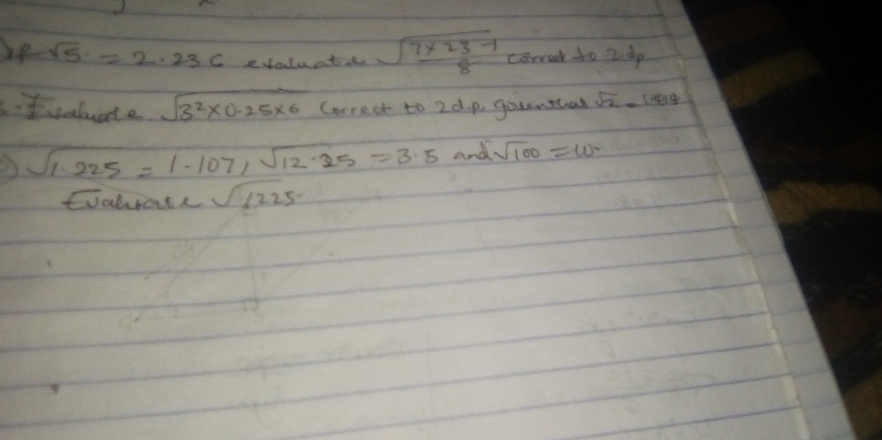 If √5 = 2.236 evaluate √(7×23-1)/8 correct to 2dp
Evaluate √3²×0.25×6 Correct to 2d.p. given that √2 =
√1.225 = 1.107, √12.25 = 3.5 and √100 = 10.
Evaluate √1225.